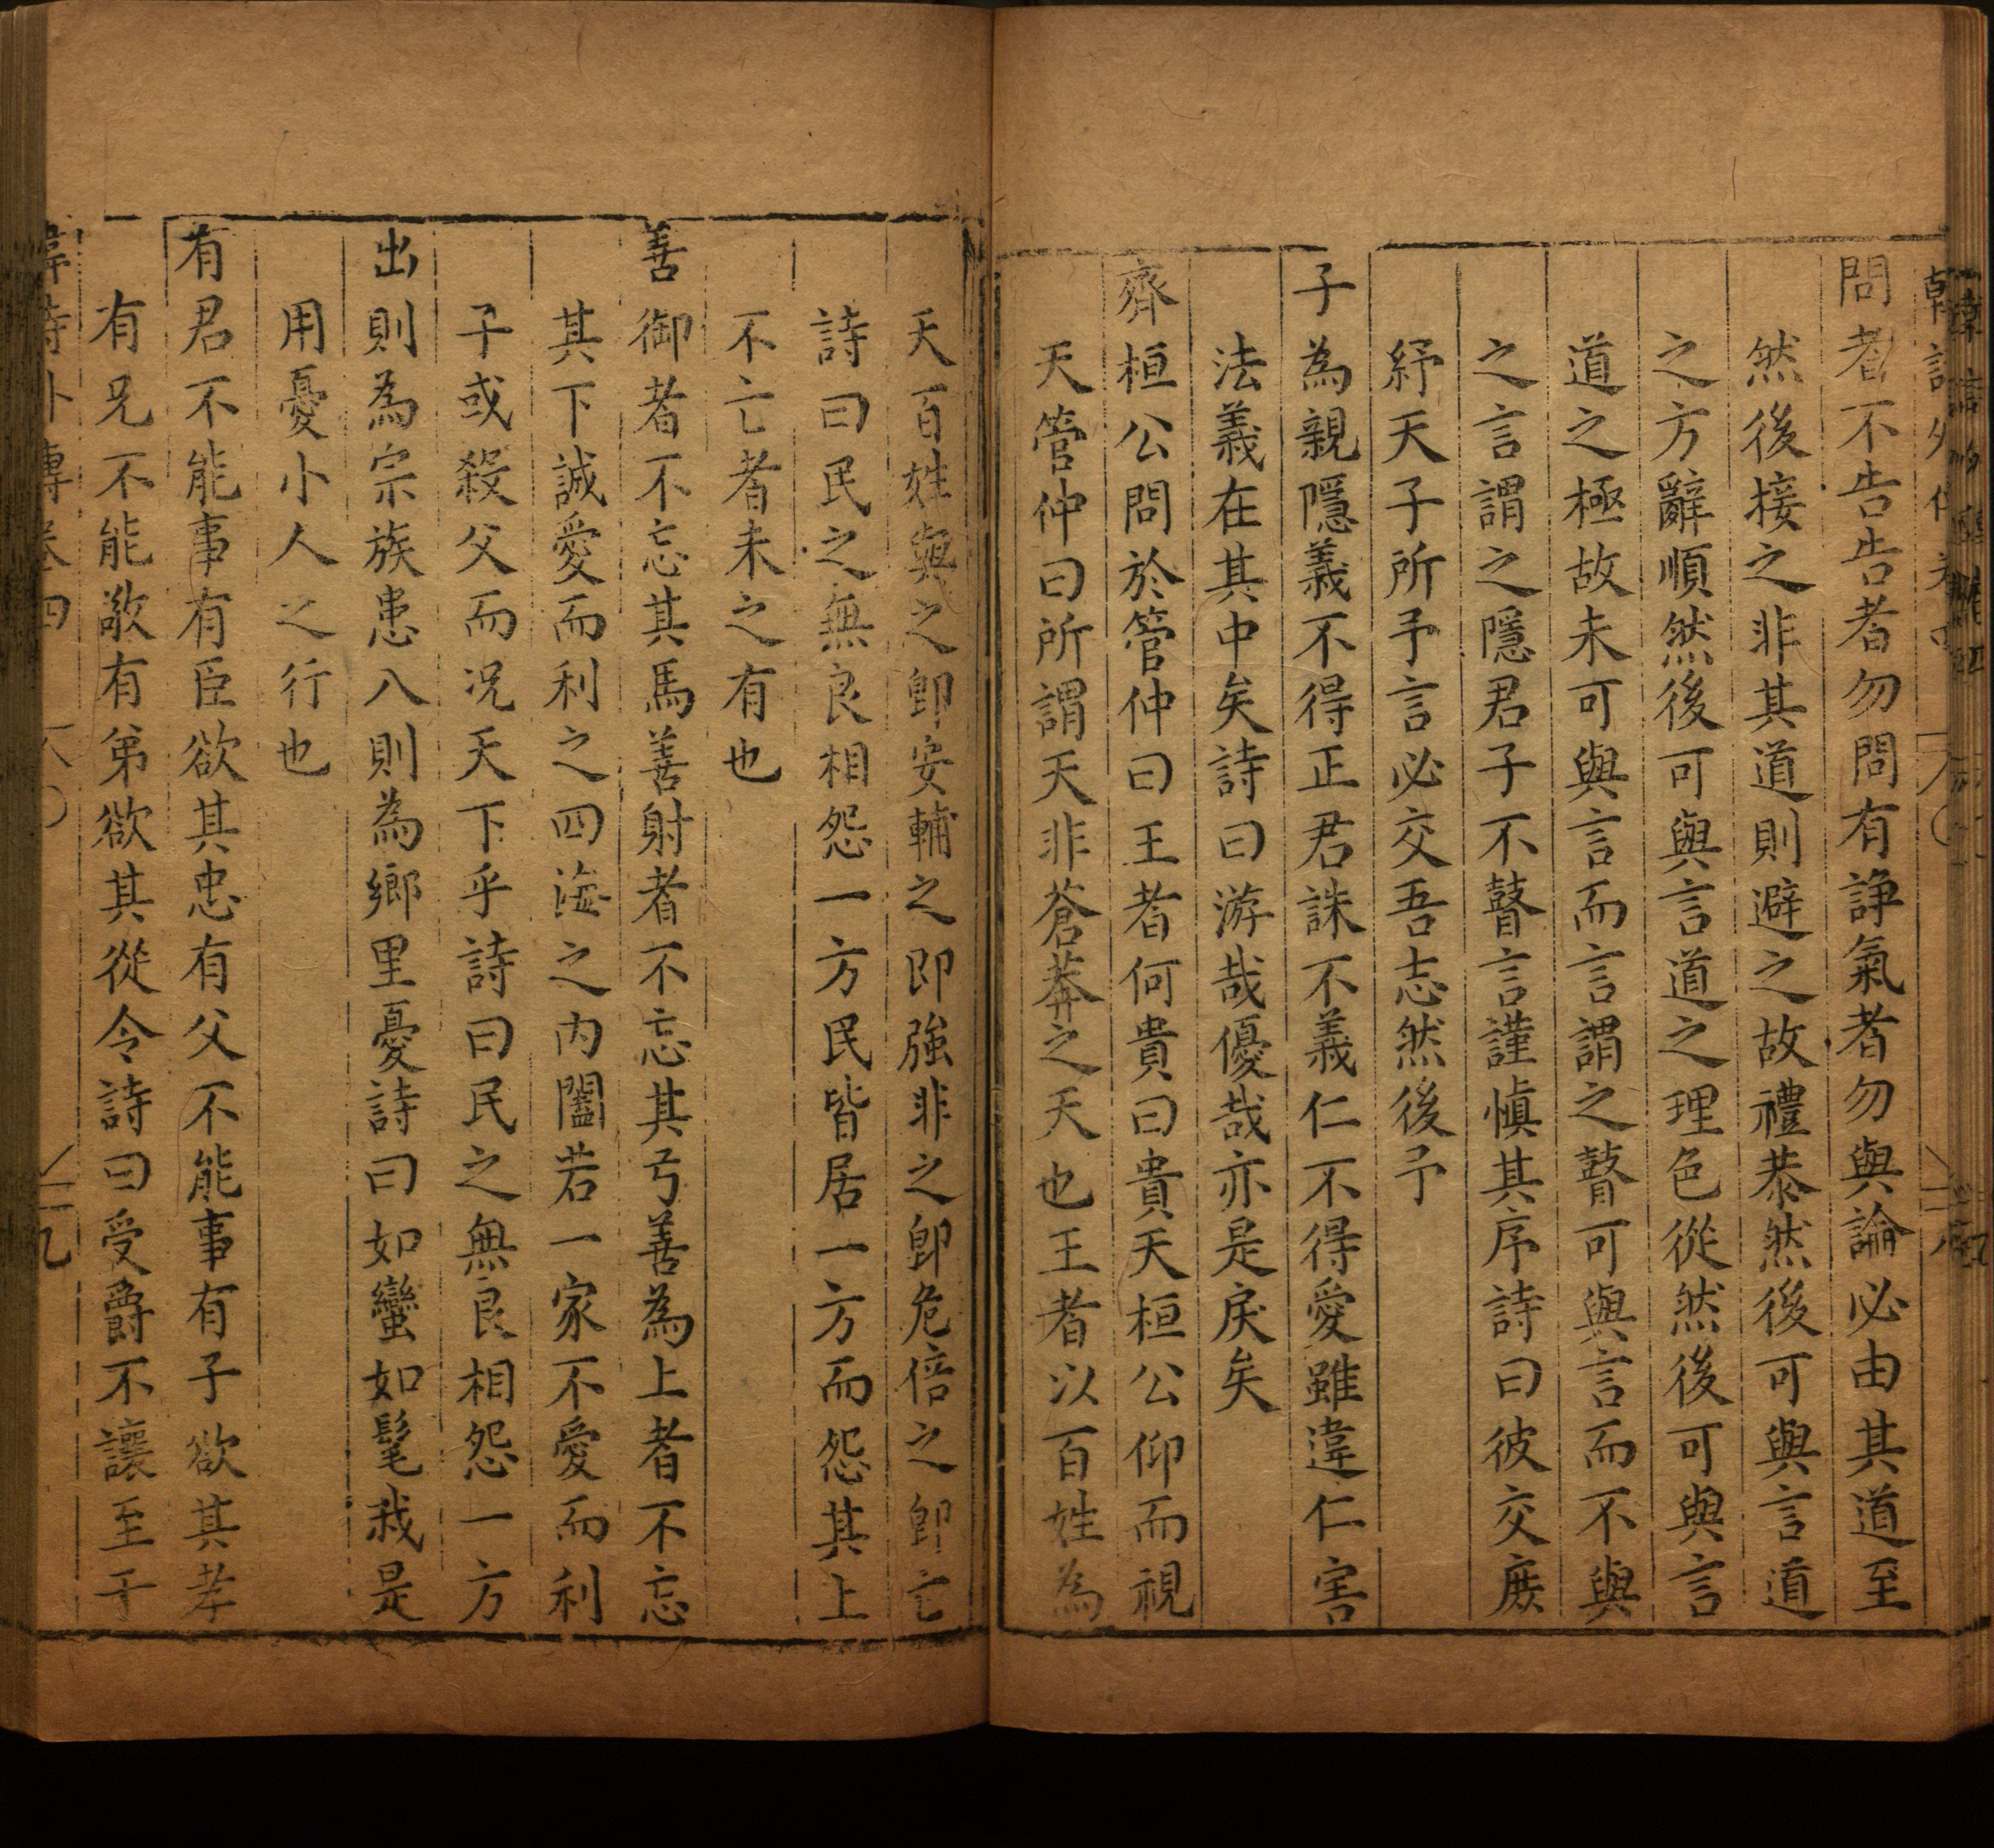 問者不告告者勿問有諍氣者勿與論必由其道至
然後接之非其道則避之故禮恭然後可與言道
之方辭順然後可與言道之理色從然後可與言
道之極故未可與言而言謂之瞽可與言而不與
之言謂之隱君子不瞽言謹慎其序詩曰彼交庻
紓天子所予言必交吾志然後予
子為親隱義不得正君誅不義仁不得愛雖違仁害
法義在其中矣詩曰游哉優哉亦是戾矣
齊桓公問於管仲曰王者何貴曰貴天桓公仰而視
天管仲曰所謂天非蒼莽之天也王者以百姓為
天百姓與之卽安輔之即強非之卽危倍之卽亡
詩曰民之無良相怨一方民皆居一方而怨其上
不亡者未之有也
善御者不忘其馬善射者不忘其弓善為上者不忘
其下誠愛而利之四海之内闔若一家不愛而利
子或殺父而况天下乎詩曰民之無良相怨一方
出則為宗族患入則為鄉里憂詩曰如蠻如髦我是
用憂小人之行也
有君不能事有臣欲其忠有父不能事有子欲其孝
有兄不能敬有弟欲其從令詩曰受爵不讓至于
詩外傳卷四